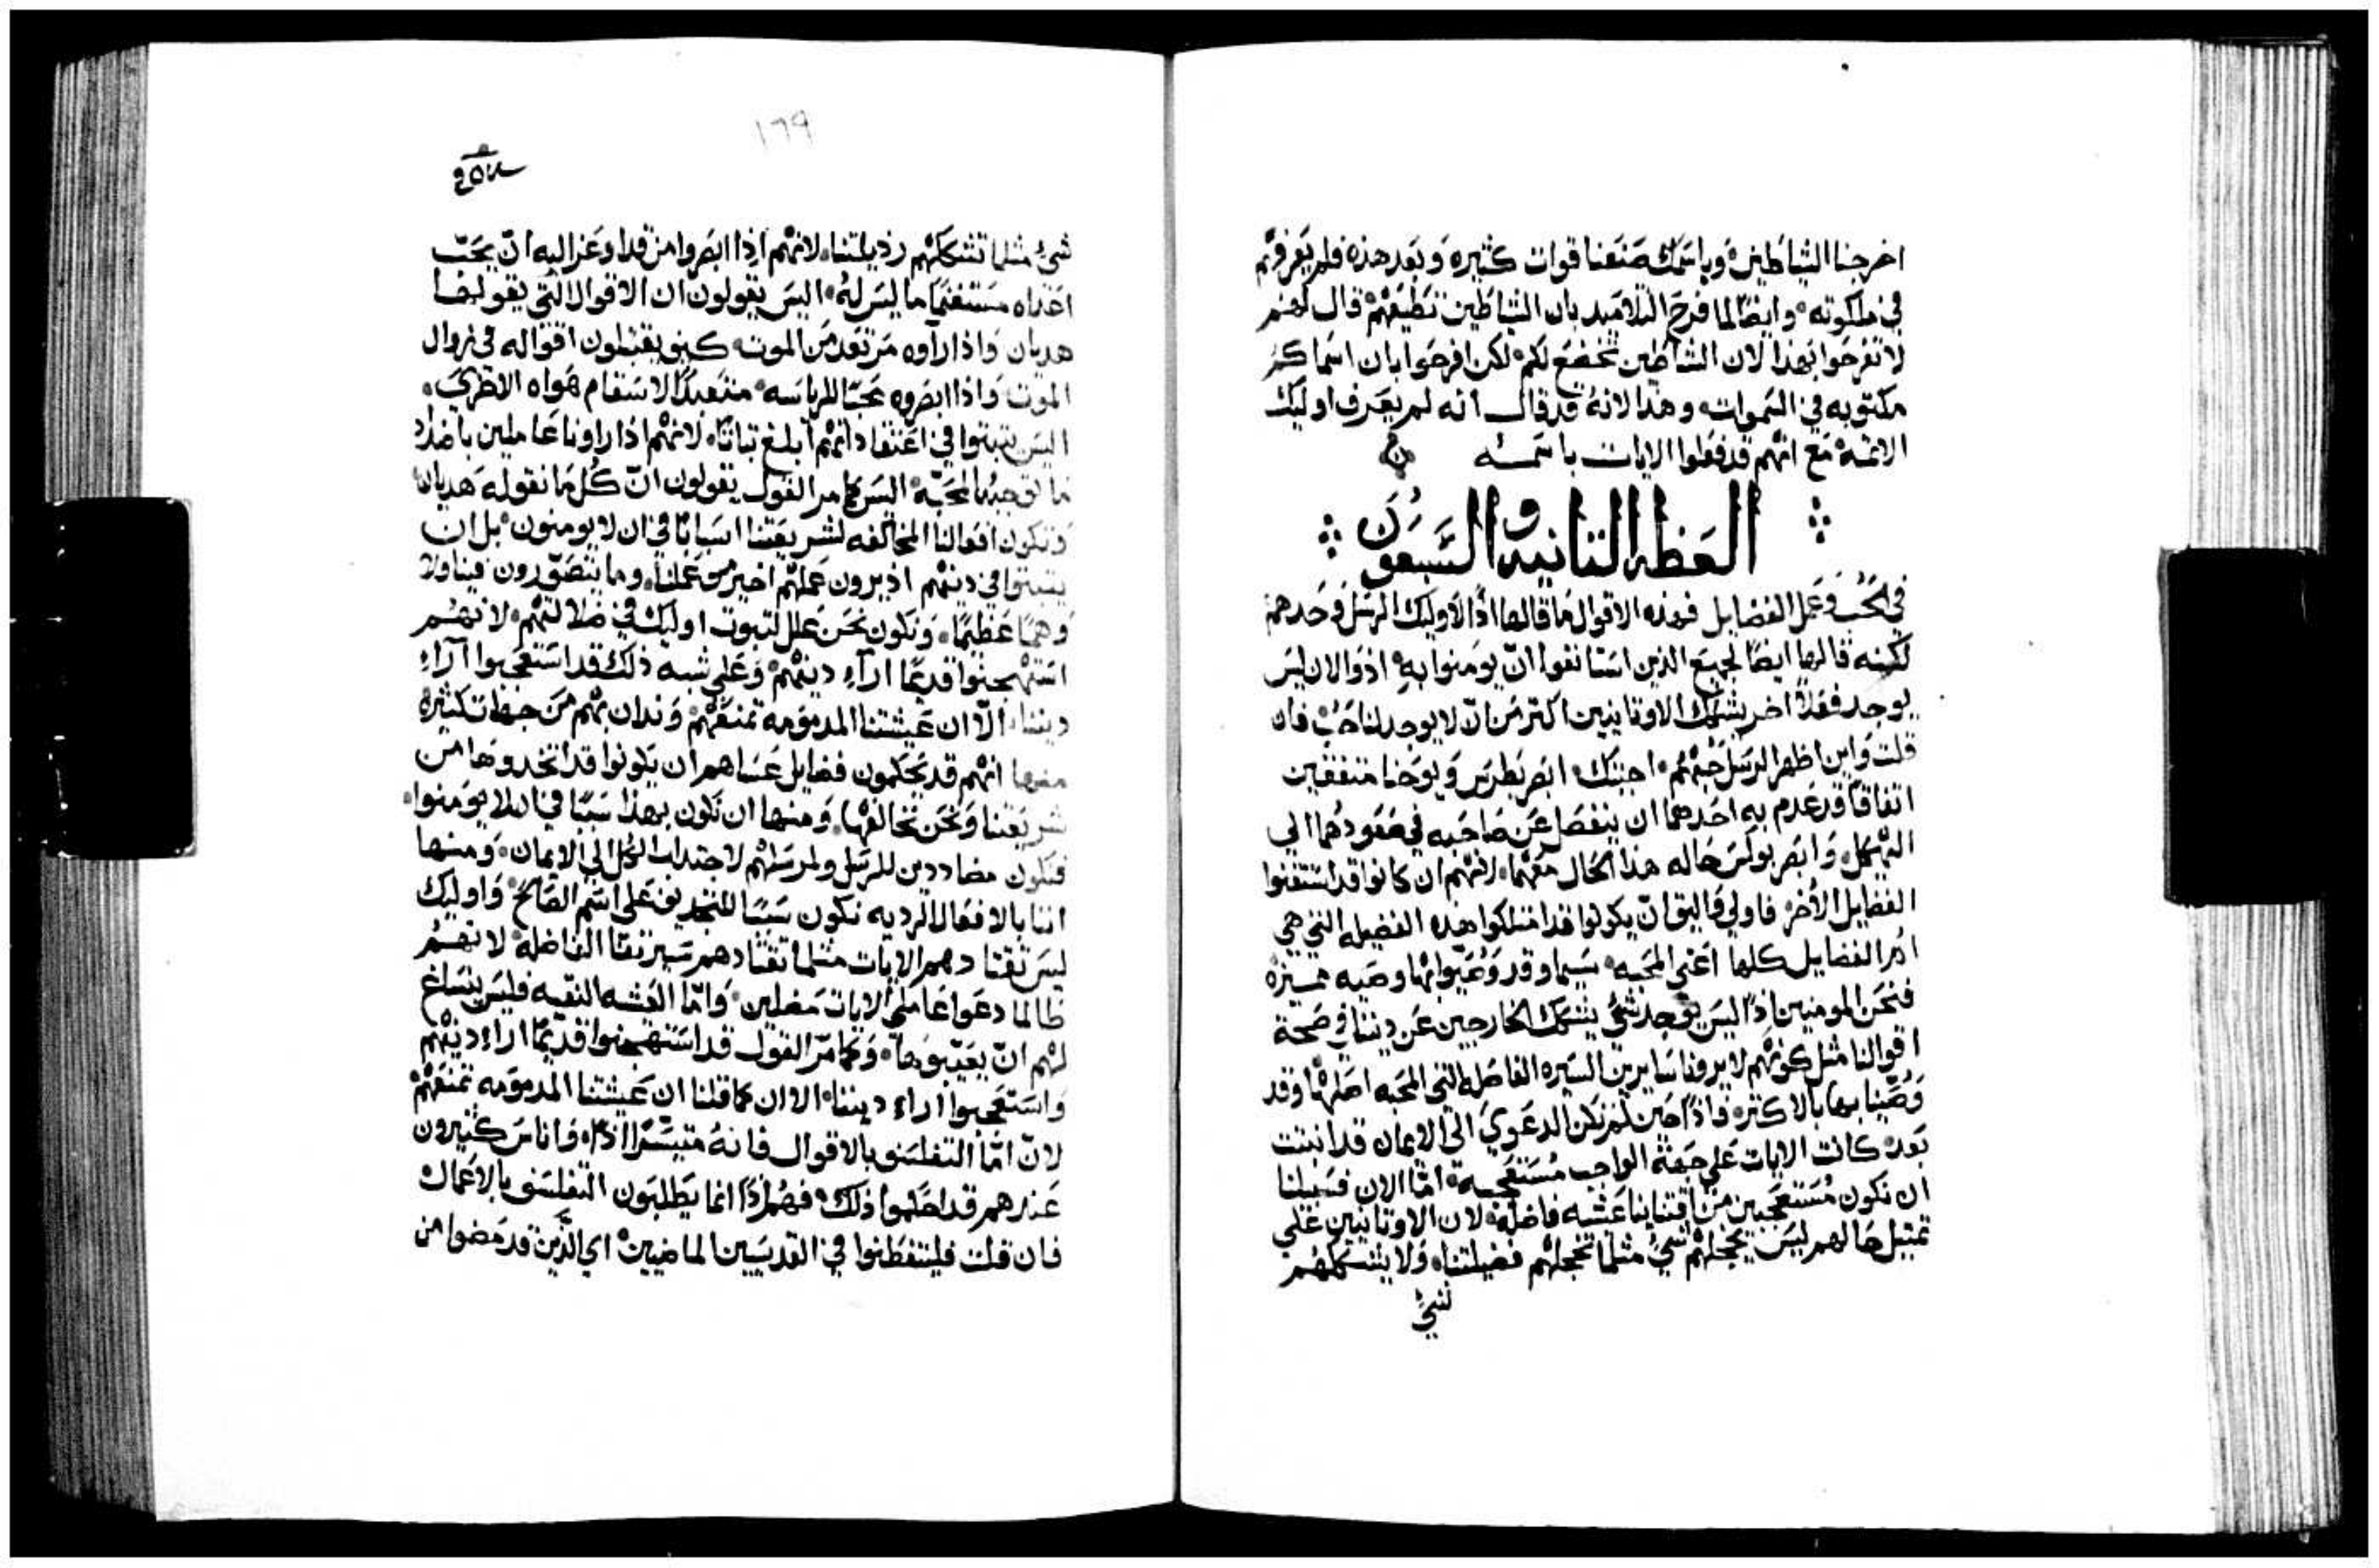 اخرجنا الشياطين وباسمك صنعنا قوات كثيره وبعد هذه فلم يعرفهم
في ملكوته وايضًا لما فرح التلاميد بان الشياطين تطيعهم قال لهم
لا تفرحوا بهذا لان الشياطين تخضع لكم لكن افرحوا بان اسماكم
مكتوبه في السموات وهذا لانهُ قد قال انه لم يعرف اوليك
الاثمة مع انهم قد فعلوا الايات باسمه
العظه الثانيه والسبعون
في الحُب وعمل الفضايل فهذه الاقوال ما قالها اذًا لاوليك الرسل وحدهم
لكنه قالها ايضًا لجميع الذين استانفوا انّ يومنوا بهِ اذ والان ليس
يوجد فعلاً اخر يشكك الاوثانيين اكثر من انّ لا يوجد لنا حُب فان
قلت واين اظهر الرسل حبهُم اجبتك ابصر بطرس ويوحنا متفقين
اتفاقًا قد عدم به احدهما ان ينفصل عن صاحبه في صعودهما الي
الهيكل وابصر بولس حاله هذا الحال معهما لانهم ان كانوا قد استقنوا
الفضايل الأخر فاولي واليق انّ يكونوا قد امتلكوا هذه الفضيله التي هي
ام الفضايل كلها اعني المحبه سيما وقد وُصّيوا بها وصيه مميزه
فنحن المومنين اذًا ليس يوجد شيٌ يشكك الخارجين عن ديننا في صحة
اقوالنا مثل كونهم لا يرونا سايرين السيره الفاضله التي المحبه اصلها وقد
وُصّينا بها بالاكثر فاذًا حين لم تكن الدعوي الى الايمان قد انبثت
بعد كانت الايات على جهة الواجب مُستعجبة امّا الان فسبيلنا
ان نكون مُستعجبين من اقتناينا عشيه فاضله لان الاوثانيين على
تمثيل حالهم ليس يخجلهم شيٌ مثلما تخجلهم فضيلتنا ولا يشككهم
شيٌ
١٦٩
شيٌ مثلما تشككهم رذيلتنا لانهم اذا ابصروا من قد اوعز اليه انّ يحبّ
اعداه مستغنمًا ما ليس لهُ اليس يقولون ان الاقوال التي يقولها
هديان واذا راوه مرتعد من الموت كيف يقبلون اقواله في زوال
الموت واذا ابصروه محبًا للرياسه متعبدًا لاسقام هواه الاخري
اليس يثبتوا في اعتقاداتهم ابلغ ثباتًا لانهم اذا راونا عاملين باضداد
ما توجبه المحبّه اليس كما مر القول يقولون انّ كُل ما نقوله هديان
وتكون افعالنا المخالفه لشريعتنا اسبابًا في ان لا يومنون بل ان
يثبتوا في دينهم اذ يرون عملهم اخير من عملنا وما يتصّورون فينا ولا
وهمًا عظيمًا ونكون نحن علل لثبوت اوليك في ضلالتهم لانهُم
استهجنوا قديمًا اراءِ دينهم وعلى شبه ذلك قد استعجبوا آراءِ
ديننا الّا ان عيشتنا المدمومه تمنعهم وندان بهم من جهات كثيره
منها انهم قد يحكمون فضايل عساهم ان يكونوا قد اتخدوها من
شريعتنا ونحن نخالفها ومنها ان نكون بهذا سببًا في الا يومنوا
فنكون مضاددين للرسل ولمرسلهم لاجتداب الكل الى الايمان ومنها
اننا بالافعال الرديه نكون سببًا للتجديف على اسم الصالح واوليك
ليس تقتادهم الايات مثلما تقتادهم سيرتنا الفاضله لانهُم
طالما دعوا عاملي الايات مضلين وامّا العشه النقيه فليس ينساغ
لهم انّ يعيّبوها وكما مرّ القول قد استهجنوا قديمًا اراءِ دينهم
واستعجبوا اراء ديننا الا ان كما قلنا ان عيشتنا المدمومه تمنعهم
لانّ امّا التفلسف بالاقوال فانهُ متيسّرًا اذًا واناس كثيرون
عندهم قد احكموا ذلك فهُم اذًا انما يطلبون التفلسف بالاعمال
فان قلت فليتفطنوا في القديسيين الماضيين اي الّذين قد مضوا من